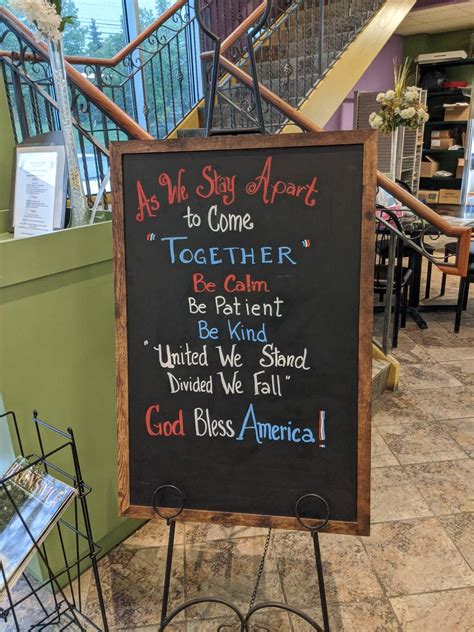 As We Stay Apart
to Come
"TOGETHER"
Be Calm
Be Patient
Be Kind
"United We Stand
Divided We Fall"
God Bless America!